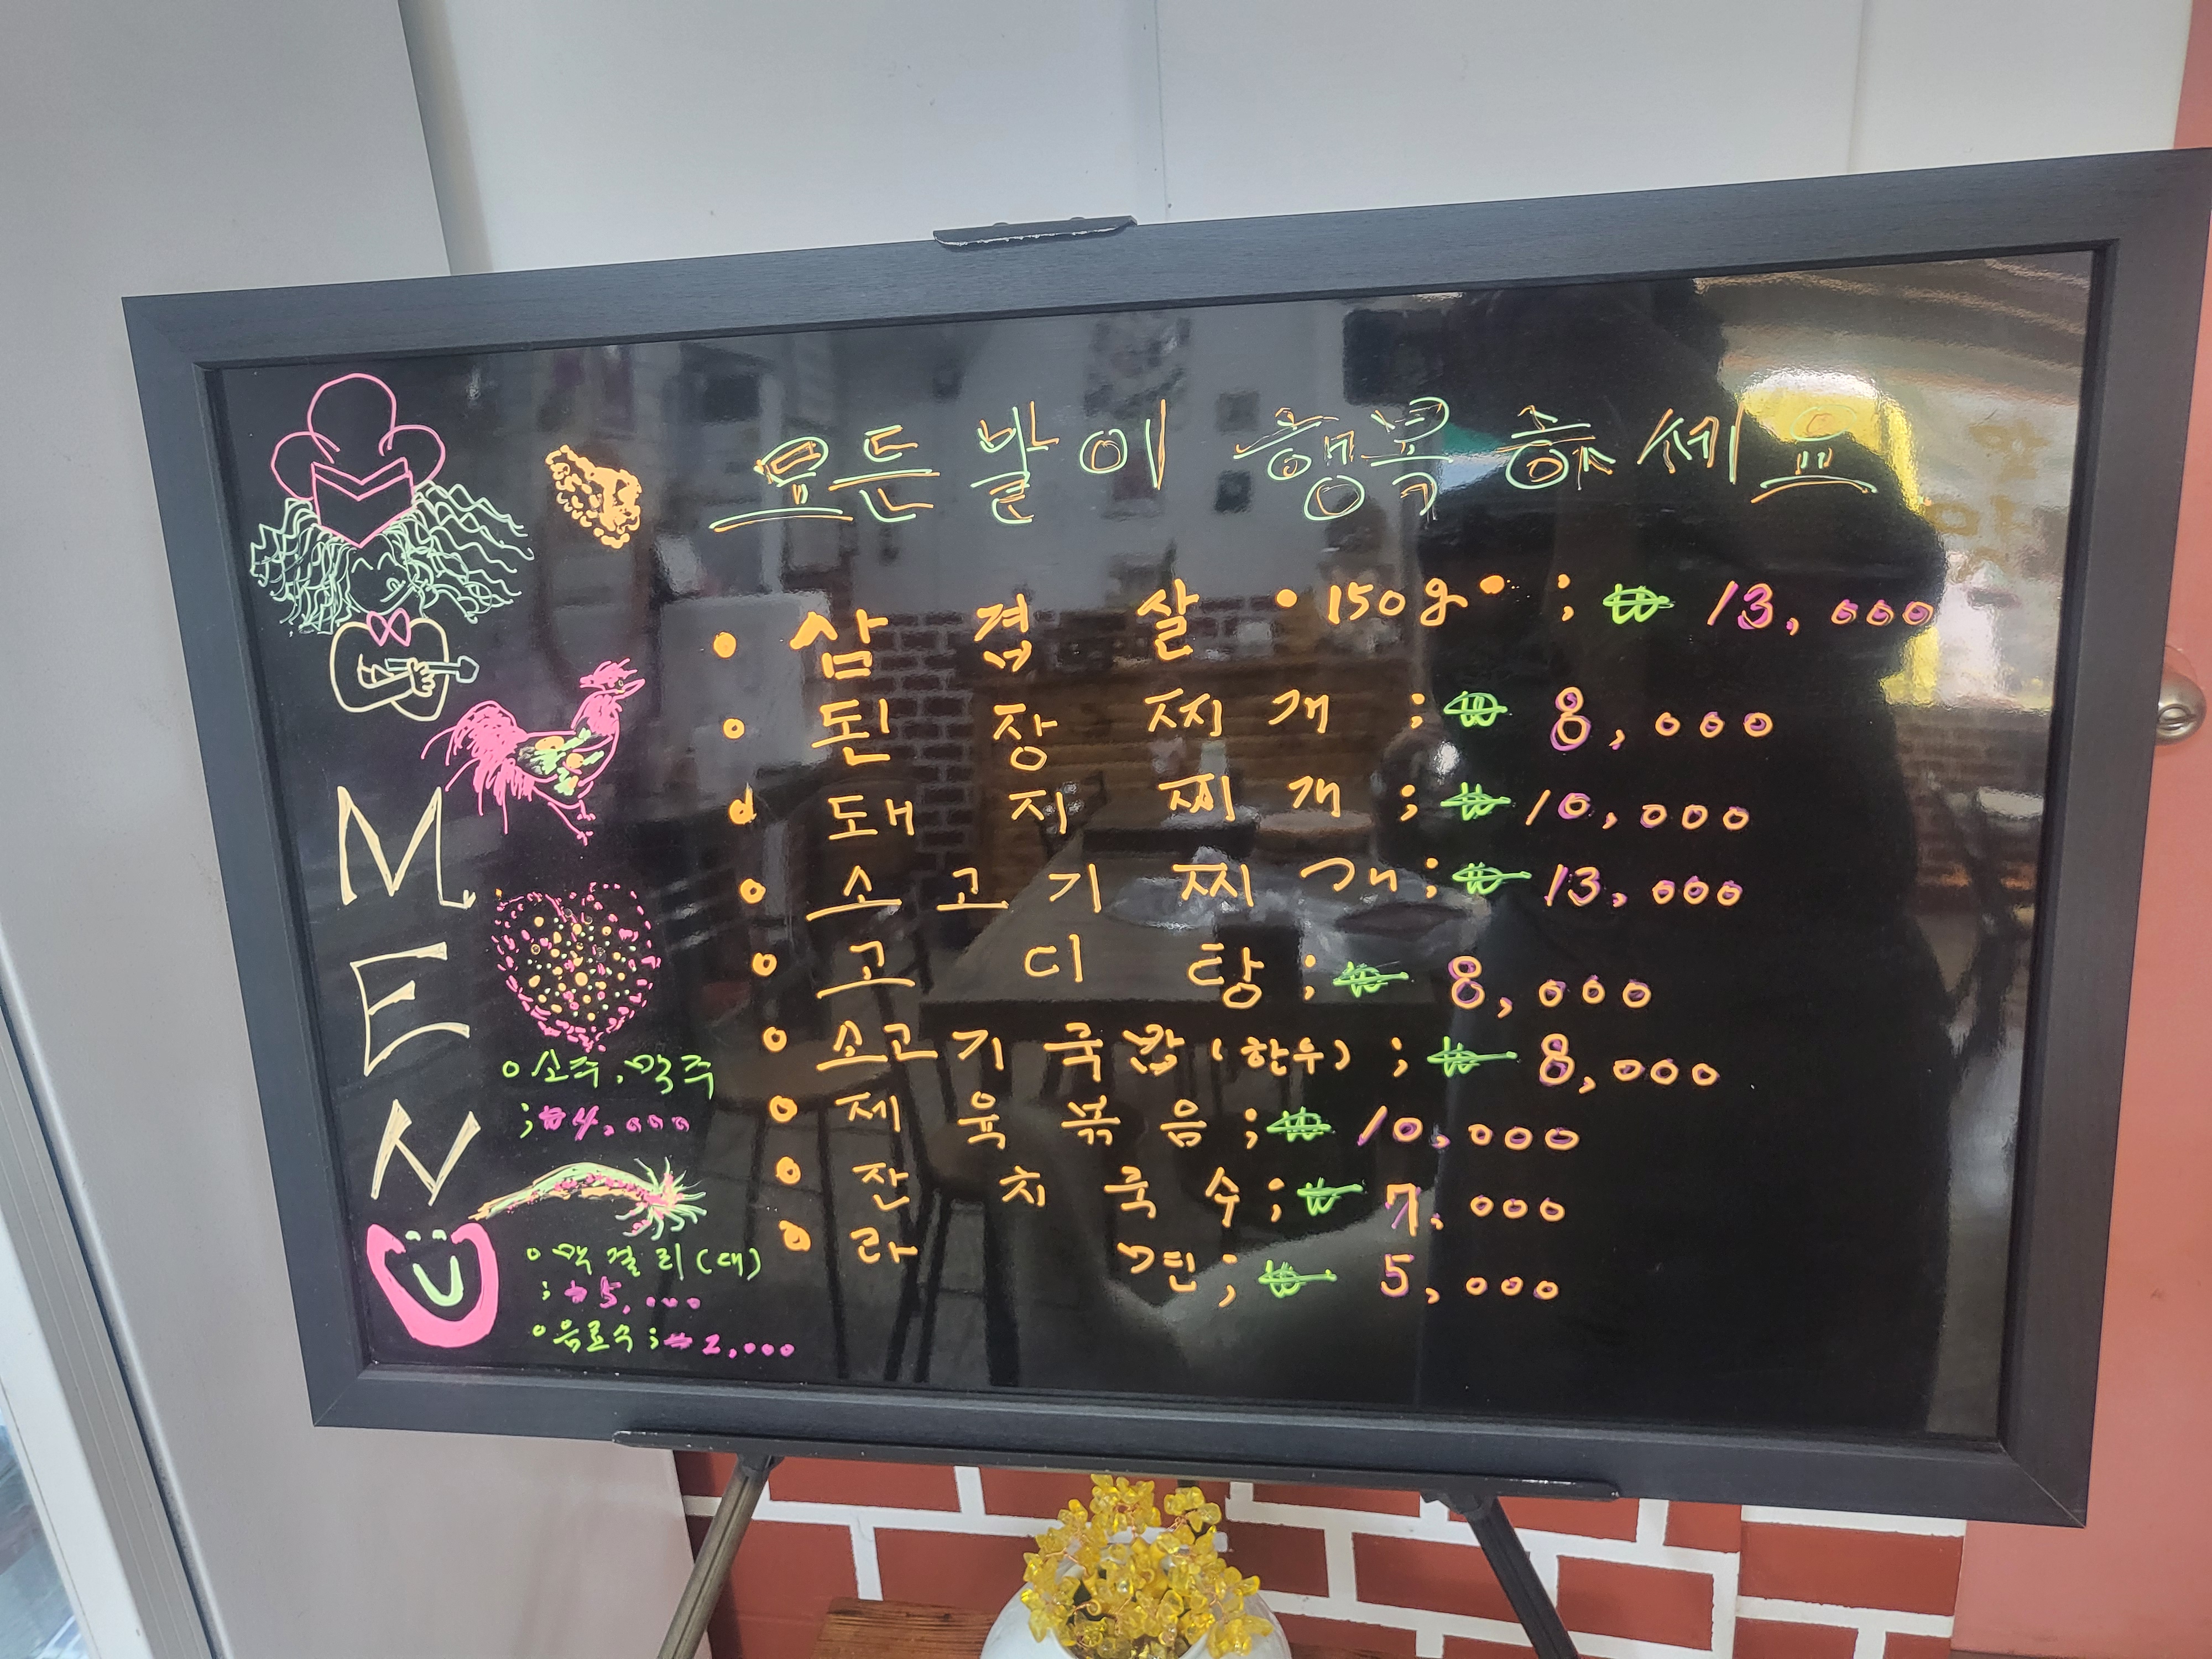 모든 날이 행복하세요
• 삼겹살 •150g• ; ₩ 13,000
• 된장찌개 ; ₩ 8,000
• 돼지찌개 ; ₩ 10,000
• 소고기찌개 ; ₩ 13,000
• 고디탕 ; ₩ 8,000
• 소고기국밥 (한우) ; ₩ 8,000
• 제육볶음 ; ₩ 10,000
• 잔치국수 ; ₩ 7,000
• 라면 ; ₩ 5,000
MENU
• 소주, 맥주
; ₩ 4,000
• 막걸리 (대)
; ₩ 5,000
• 음료수 ; ₩ 2,000